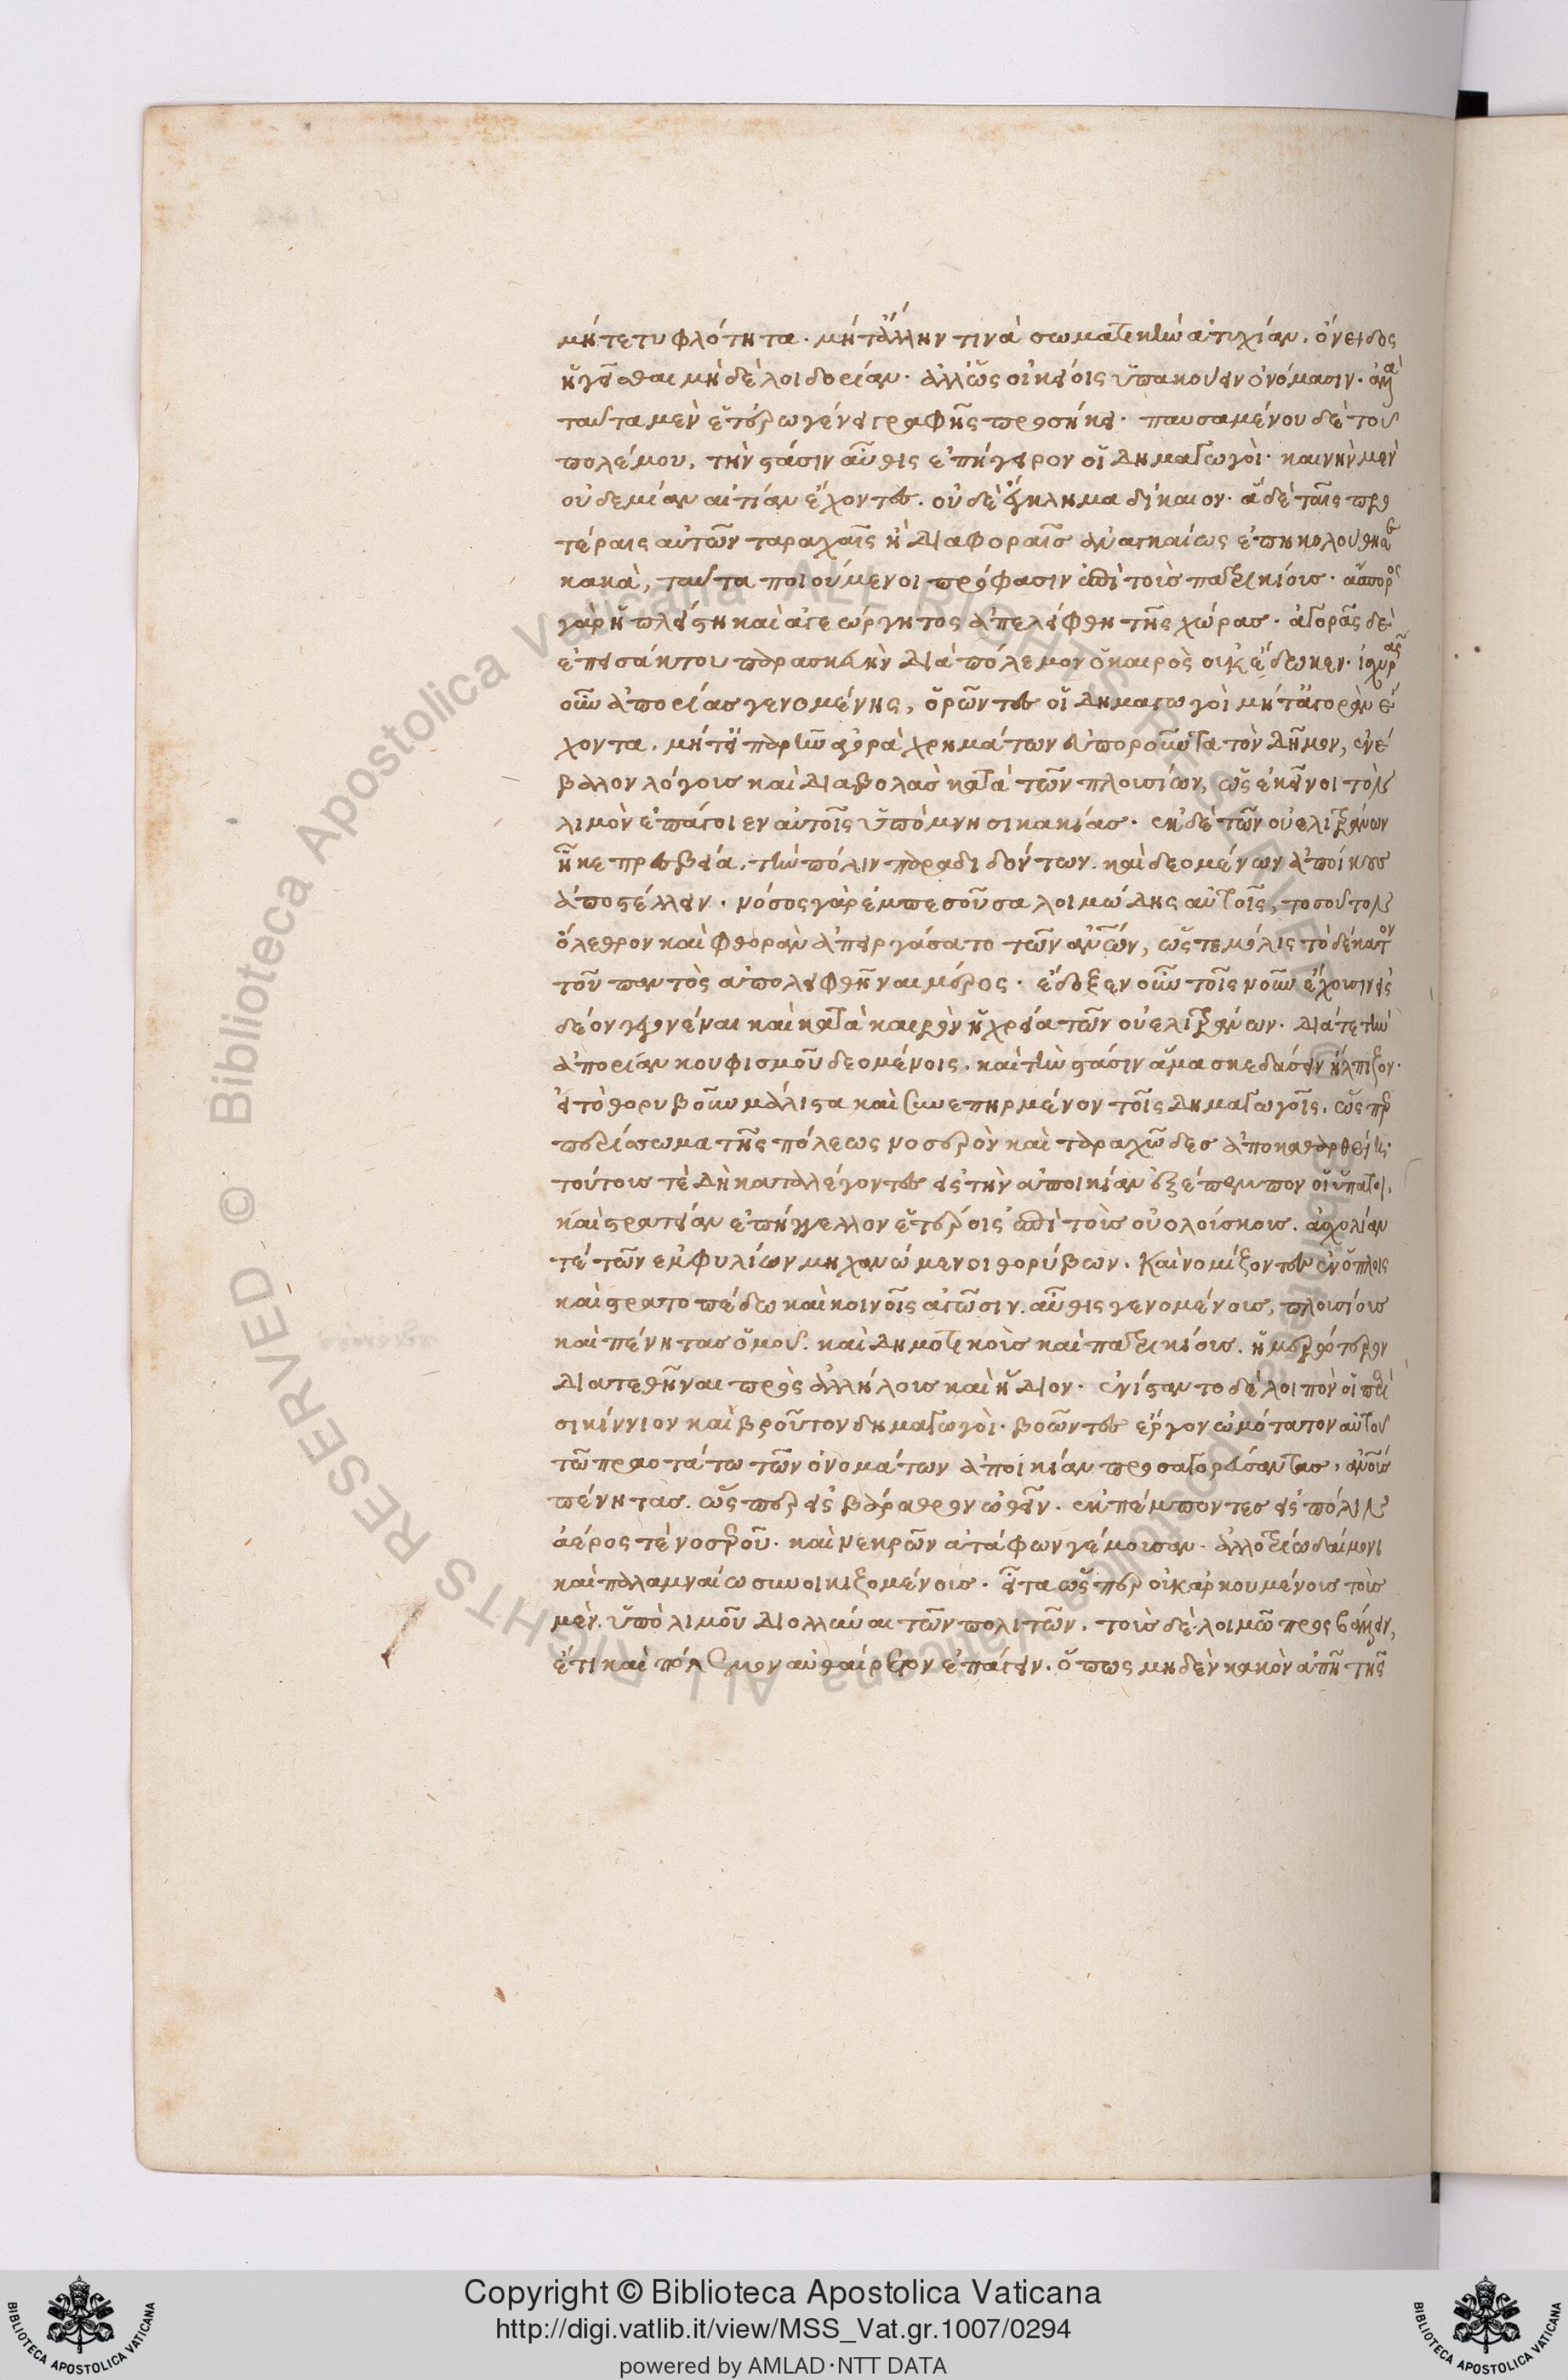 μήτε τυφλότητα. μήτ' ἄλλην τινὰ σωματικὴν ἀτυχίαν. ὄνειδος
ἡγεῖσθαι μηδὲ λοιδορίαν. ἀλλ' ὡς οἰκείοις ὑπακούειν ὀνόμασιν. ἀλλὰ
ταῦτα μὲν ἑτέρω γένει γραφῆς προσήκει. παυσαμένου δὲ τοῦ
πολέμου, τὴν στάσιν αὖθις ἐπήγειρον οἱ δημαγωγοὶ. καινὴν μὲν
οὐδεμίαν αἰτίαν ἔχοντες. οὐδὲ ἔγκλημα δίκαιον. ἃ δὲ ταῖς προ
τέραις αὐτῶν ταραχαῖς καὶ διαφοραῖς ἀναγκαίως ἐπηκολούθησε
κακὰ, ταῦτα ποιούμενοι πρόφασιν ἐπὶ τοὺς πατρικίους. ἄσπορος
γὰρ ἡ πλείστη καὶ ἀγεώργητος ἀπελείφθη τῆς χώρας. ἀγορᾶς δὲ
ἐπεισάκτου παρασκευὴν διὰ πόλεμον ὁ καιρὸς οὐκ ἔδωκεν. ἰσχυρᾶς
οὖν ἀπορίας γενομένης, ὁρῶντες οἱ δημαγωγοὶ μήτ' ἀγορὰν ἔ
χοντα. μήτ' εἰ παρῆν ἀγορὰ χρημάτων εὐποροῦντα τὸν δῆμον, ἐνέ
βαλλον λόγους καὶ διαβολὰς κατὰ τῶν πλουσίων, ὡς ἐκεῖνοι τὸν
λιμὸν ἐπάγοιεν αὐτοῖς ὑπὸ μνησικακίας. ἐκ δὲ τῶν οὐελιτρανῶν
ἧκε πρεσβεία. τὴν πόλιν παραδιδόντων. καὶ δεομένων ἀποίκους
ἀποστέλλειν. νόσος γὰρ ἐμπεσοῦσα λοιμώδης αὐτοῖς, τοσοῦτον
ὄλεθρον καὶ φθορὰν ἀπειργάσατο τῶν ἀνθρώπων, ὥστε μόλις τὸ δέκατον
τοῦ παντὸς ἀπολειφθῆναι μέρος. ἔδοξεν οὖν τοῖς νοῦν ἔχουσιν εἰς
δέον γεγονέναι καὶ κατὰ καιρὸν ἡ χρεία τῶν οὐελιτρανῶν. διά τε τὴν
ἀπορίαν κουφισμοῦ δεομένοις. καὶ τὴν στάσιν ἅμα σκεδάσειν ἤλπιζον.
εἰ τὸ θορυβοῦν μάλιστα καὶ συνεπηρμένον τοῖς δημαγωγοῖς. ὥσπερ
περίσσωμα τῆς πόλεως νοσερὸν καὶ ταραχῶδες ἀποκαθαρθείη.
τούτους τὲ δὴ καταλέγοντες εἰς τὴν ἀποικίαν ἐξέπεμπον οἱ ὕπατοι.
καὶ στρατείαν ἐπήγγελλον ἑτέροις ἐπὶ τοὺς οὐολούσκους. ἀσχολίαν
τέ τῶν ἐμφυλίων μηχανώμενοι θορύβων. καὶ νομίζοντες ἐν ὅπλοις
καὶ στρατοπέδω καὶ κοινοῖς ἀγῶσιν. αὖθις γενομένους, πλουσίους
καὶ πένητας ὁμοῦ. καὶ δημοτικοὺς καὶ πατρικίους. ἡμερώτερον
διατεθῆναι πρὸς ἀλλήλους καὶ ἥδιον. ἐνίσταντο δὲ λοιπὸν οἱ περὶ
σικίννιον καὶ βροῦτον δημαγωγοὶ. βοῶντες ἔργον ὠμότατον αὐτοὺς
τῶ πραοτάτω τῶν ὀνομάτων ἀποικίαν προσαγορεύσαντας, ἀνθρώπους
πένητας. ὥσπερ εἰς βάραθρον ὠθεῖν. ἐκπέμποντες εἰς πόλιν
ἀέρος τὲ νοσεροῦ. καὶ νεκρῶν ἀτάφων γέμουσαν. ἀλλοτρίω δαίμονι
καὶ παλαμναίω συνοικιζομένους. εἶτα ὥσπερ οὐκ ἀρκουμένους τοὺς
μὲν. ὑπὸ λιμοῦ διολλύναι τῶν πολιτῶν. τοὺς δὲ λοιμῶ προσβάλλειν,
ἔτι καὶ πόλεμον αὐθαίρετον ἐπάγειν. ὅπως μηδὲν κακὸν ἀπῆ τῆς
Copyright © Biblioteca Apostolica Vaticana
http://digi.vatlib.it/view/MSS_Vat.gr.1007/0294
powered by AMLAD·NTT DATA